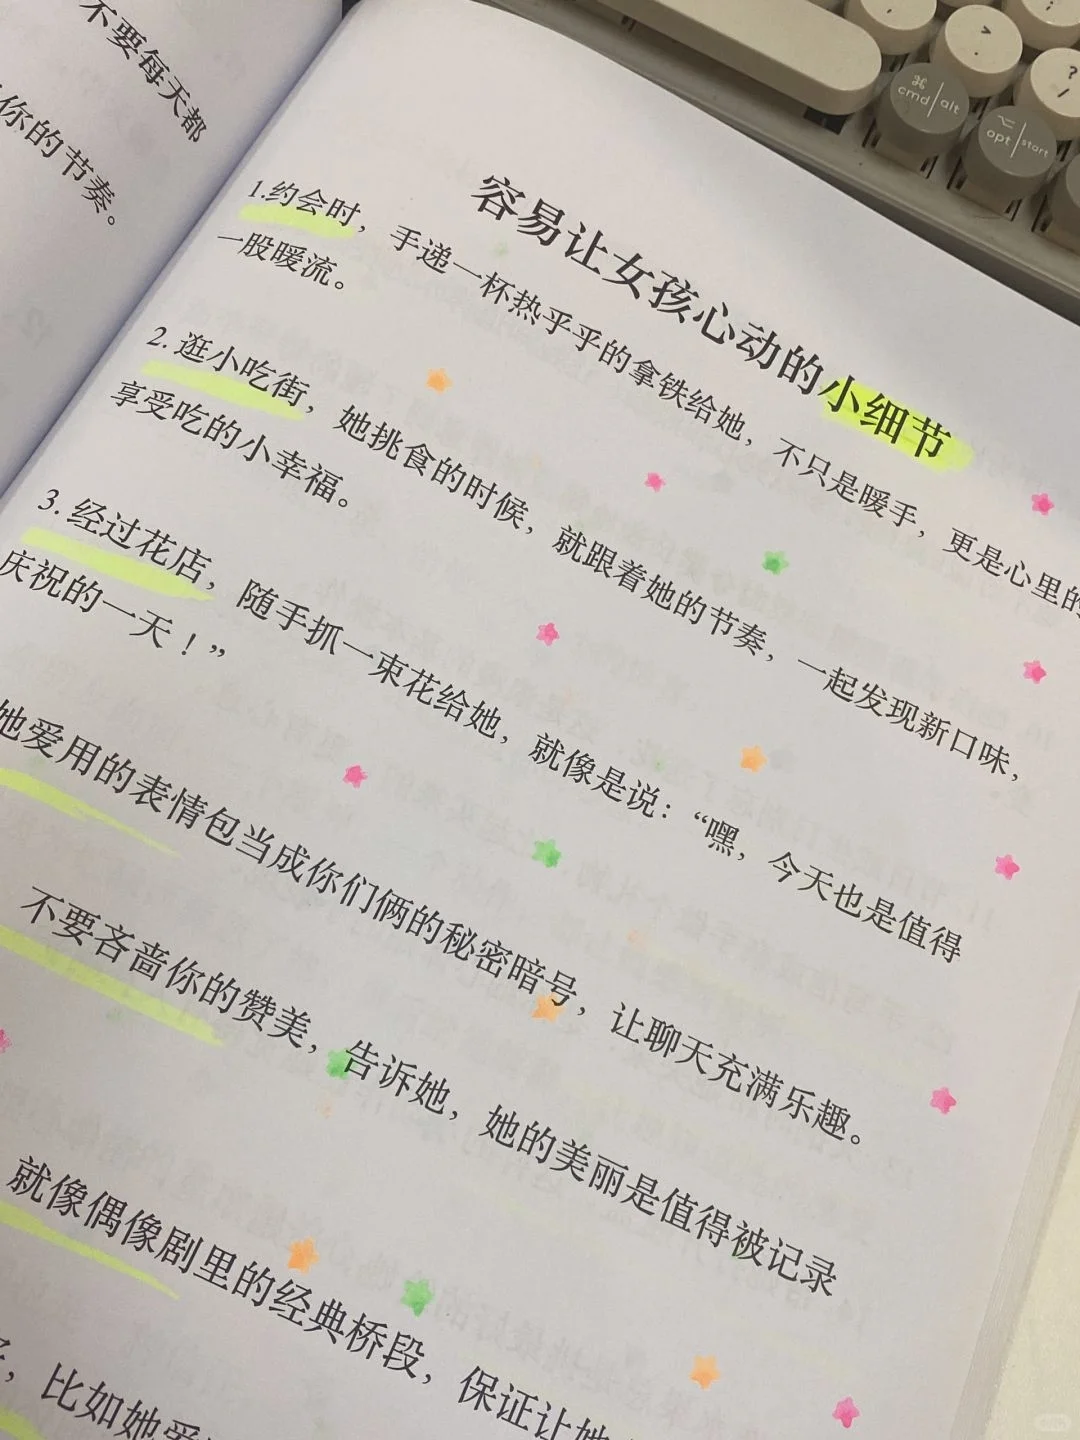 不要每天都
你的节奏。
容易让女孩心动的小细节
1.约会时，手递一杯热乎乎的拿铁给她，不只是暖手，更是心里的
一股暖流。
2. 逛小吃街，她挑食的时候，就跟着她的节奏，一起发现新口味，
享受吃的小幸福。
3. 经过花店，随手抓一束花给她，就像是说：“嘿，今天也是值得
庆祝的一天！”
她爱用的表情包当成你们俩的秘密暗号，让聊天充满乐趣。
不要吝啬你的赞美，告诉她，她的美丽是值得被记录
就像偶像剧里的经典桥段，保证让她
，比如她爱
cmd alt
opt start